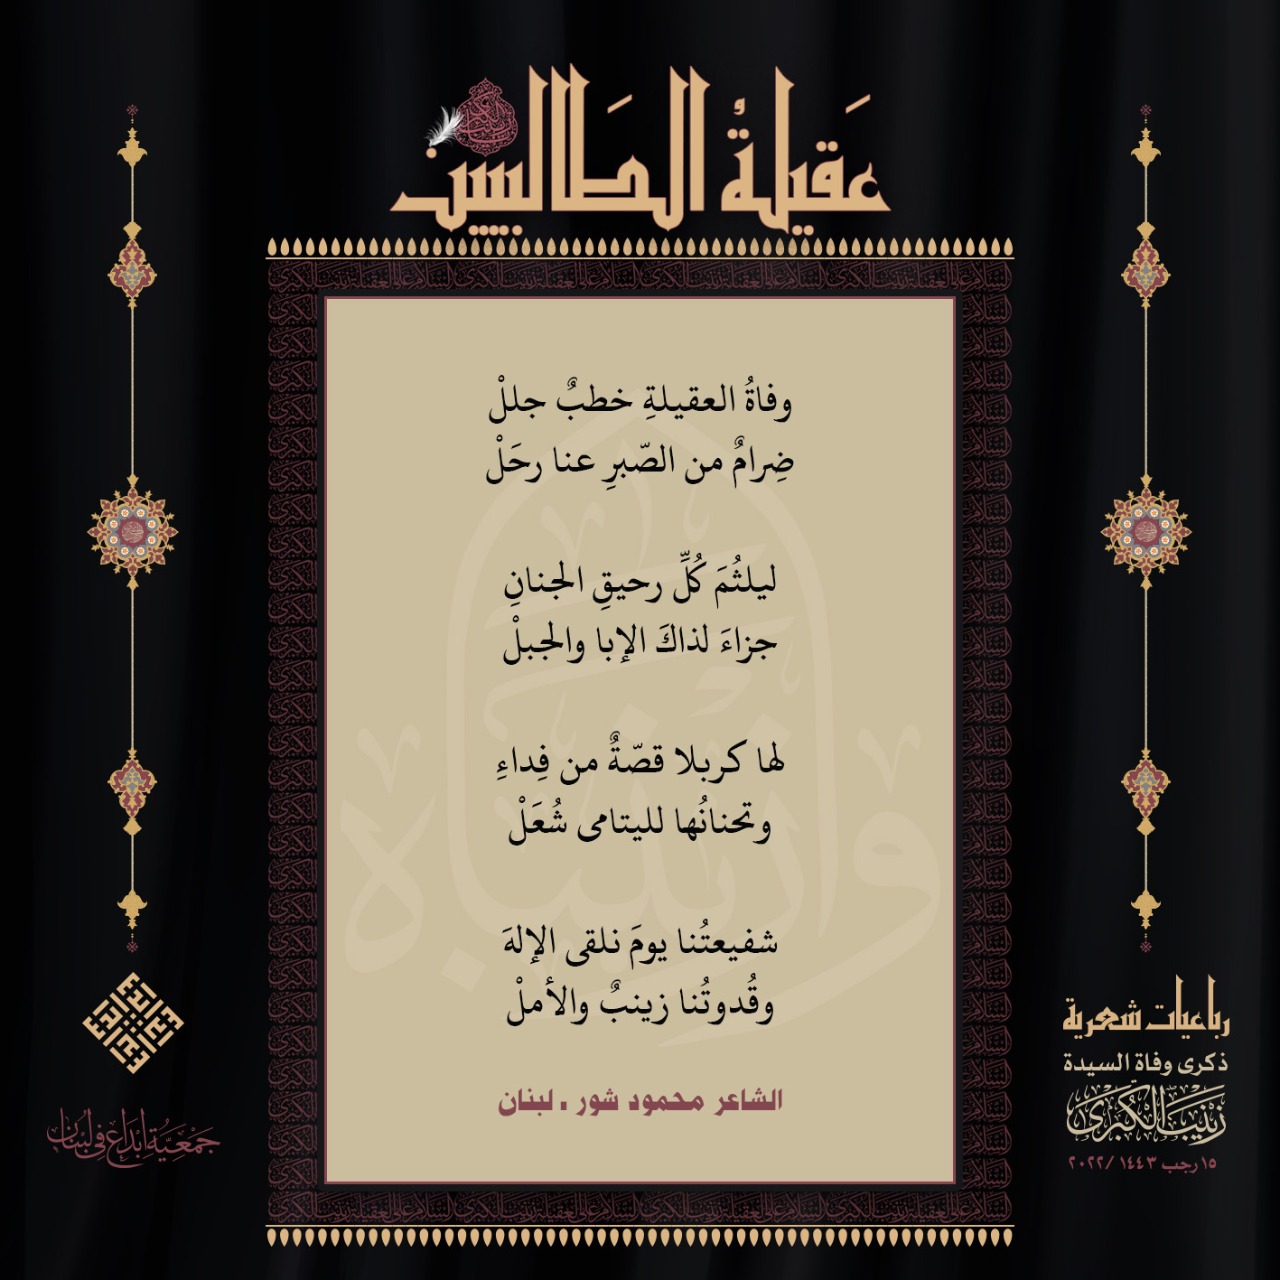 عَقيلةُ الطَالبيين
وفاةُ العقيلةِ خطبٌ جللْ
ضِرامٌ من الصّبرِ عنا رحَلْ
ليلثُمَ كُلِّ رحيقِ الجنانِ
جزاءَ لذاكَ الإبا والجبلْ
لها كربلا قصّةٌ من فِداءِ
وتحنانُها لليتامى شُعَلْ
شفيعتُنا يومَ نلقى الإلهَ
وقُدوتُنا زينبٌ والأملْ
الشاعر محمود شور . لبنان
رباعيات شعرية
ذكرى وفاة السيدة
زَيْنَب الكُبرى
١٥ رجب ١٤٤٣ /٢٠٢٢
جَمْعِيَّةُ إبْدَاع في لبنان